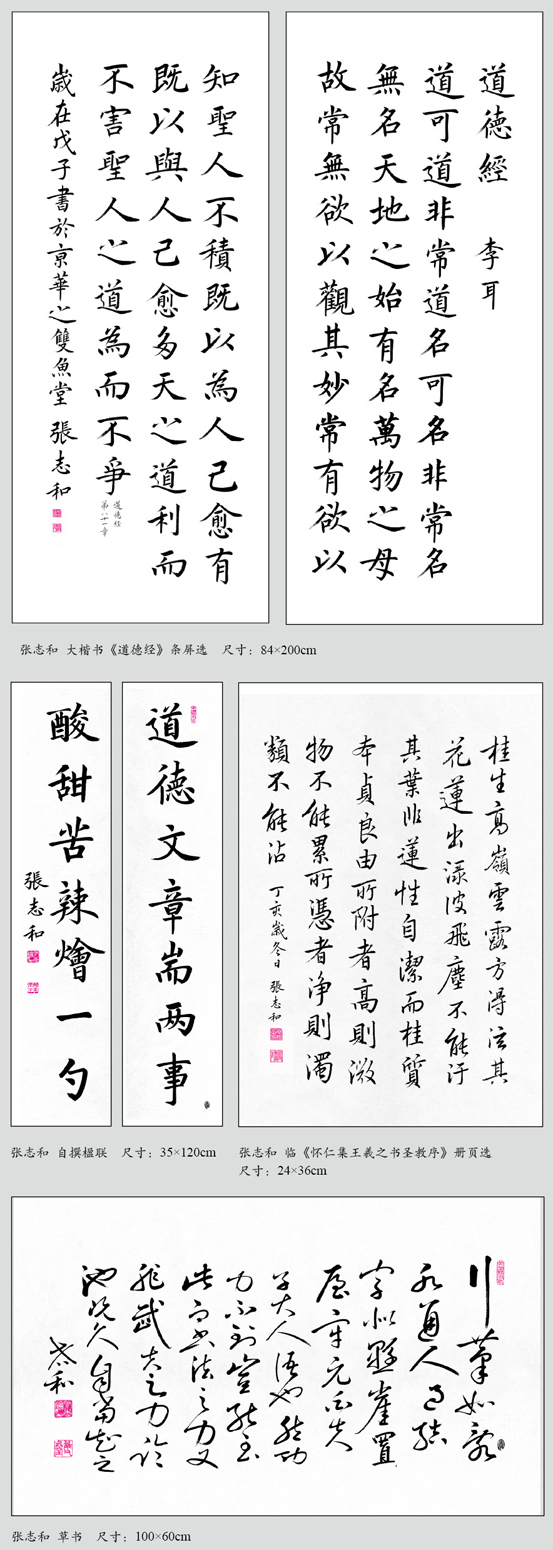 道德經 李耳
道可道非常道名可名非常名
無名天地之始有名萬物之母
故常無欲以觀其妙常有欲以
知聖人不積既以為人己愈有
既以與人己愈多天之道利而
不害聖人之道為而不爭
道德经
第八十一章
歲在戊子書於京華之雙魚堂 張志和
张志和 大楷书《道德经》条屏选 尺寸：84×200cm
道德文章耑两事
酸甜苦辣燴一勺
張志和
桂生高嶺雲露方得泫其
花蓮出淥波飛塵不能汙
其葉非蓮性自潔而桂質
本貞良由所附者高則微
物不能累所憑者净則濁
類不能沾 丁亥歲冬日 張志和
张志和 自撰楹联 尺寸：35×120cm
张志和 临《怀仁集王羲之书圣教序》册页选
尺寸：24×36cm
字似懸崖置
力不到豈能
此書法之力又
非武夫之力論
池既久自當知之
志和
张志和 草书 尺寸：100×60cm